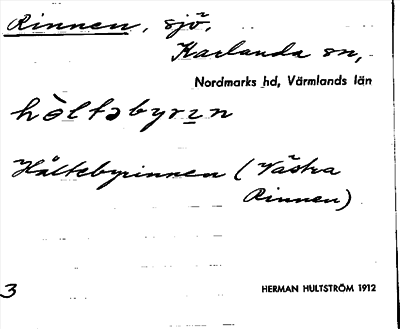 Rinnen, sjö,
Karlanda sn,
Nordmarks hd, Värmlands län
hòltəbyrın
Hältebyrinnen (Västra
Rinnen)
3
HERMAN HULTSTRÖM 1912